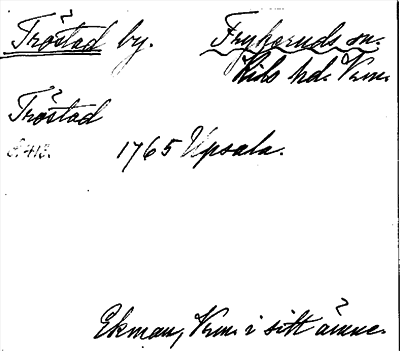 Tröstad by. Frykeruds sn.
Kils hd. Vrm.
Tröstad
1765 Upsala.
Ekman, Vrm. i sitt ämne.